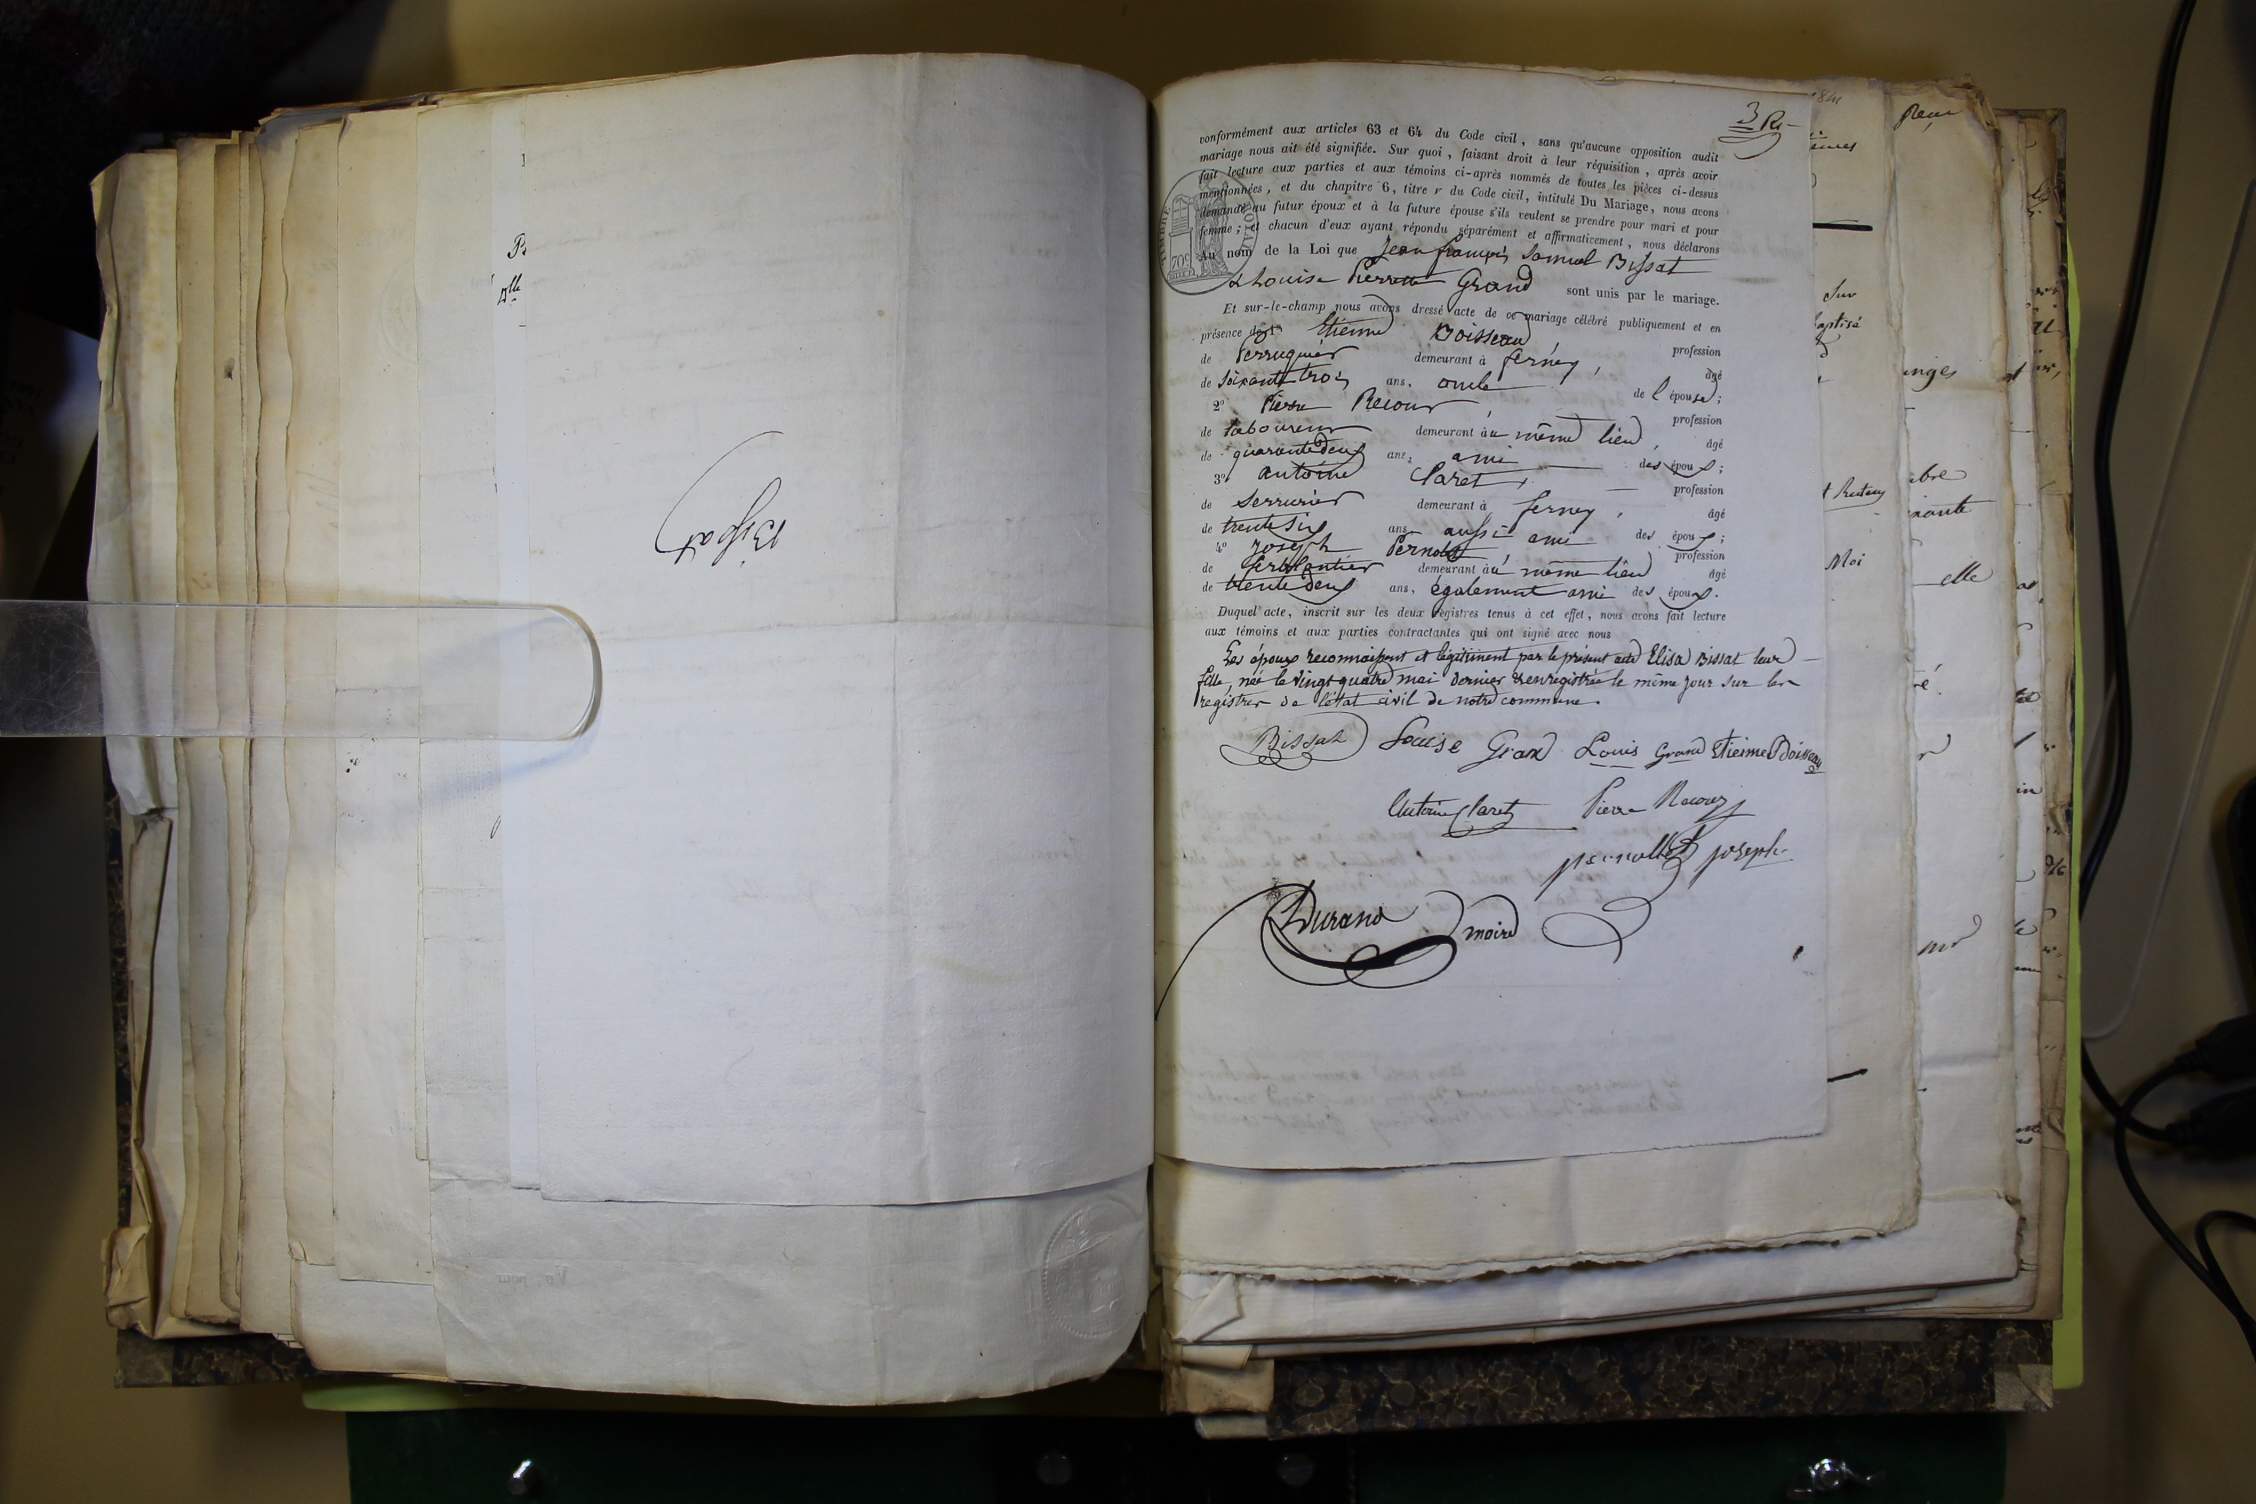 Bissat
3 Re
conformément aux articles 63 et 64 du Code civil, sans qu'aucune opposition audit
mariage nous ait été signifiée. Sur quoi, faisant droit à leur réquisition, après avoir
fait lecture aux parties et aux témoins ci-après nommés de toutes les pièces ci-dessus
mentionnées, et du chapitre 6, titre v du Code civil, intitulé Du Mariage, nous avons
demandé au futur époux et à la future épouse s'ils veulent se prendre pour mari et pour
femme; et chacun d'eux ayant répondu séparément et affirmativement, nous déclarons
Au nom de la Loi que Jean françois Samuel Bissat
& Louise Pierrette Grand sont unis par le mariage.
Et sur-le-champ nous avons dressé acte de ce mariage célébré publiquement et en
présence de 1° Etienne Boisseau,
de Perruquier demeurant à ferney, profession
de soixante trois ans, oncle âgé
de l'épouse;
2° Pierre Recour, profession
de laboureur demeurant au même lieu, âgé
de quarante deux ans, ami des époux;
3° antoine Claret, profession
de serrurier demeurant à ferney, âgé
de trente six ans, aussi ami des époux;
4° Joseph Pernollet profession
de ferblantier demeurant au même lieu âgé
de trente deux ans, également ami des époux.
Duquel acte, inscrit sur les deux registres tenus à cet effet, nous avons fait lecture
aux témoins et aux parties contractantes qui ont signé avec nous
Les époux reconnaissent et légitiment par le présent acte Elisa Bissat leur
fille, née le vingt quatre mai dernier & enregistrée le même jour sur les
registres de l'état civil de notre commune.
Bissat Louise Grand Louis Grand Etienne Boisseau
Antoine Claret Pierre Recour
pernollet joseph
Durand maire